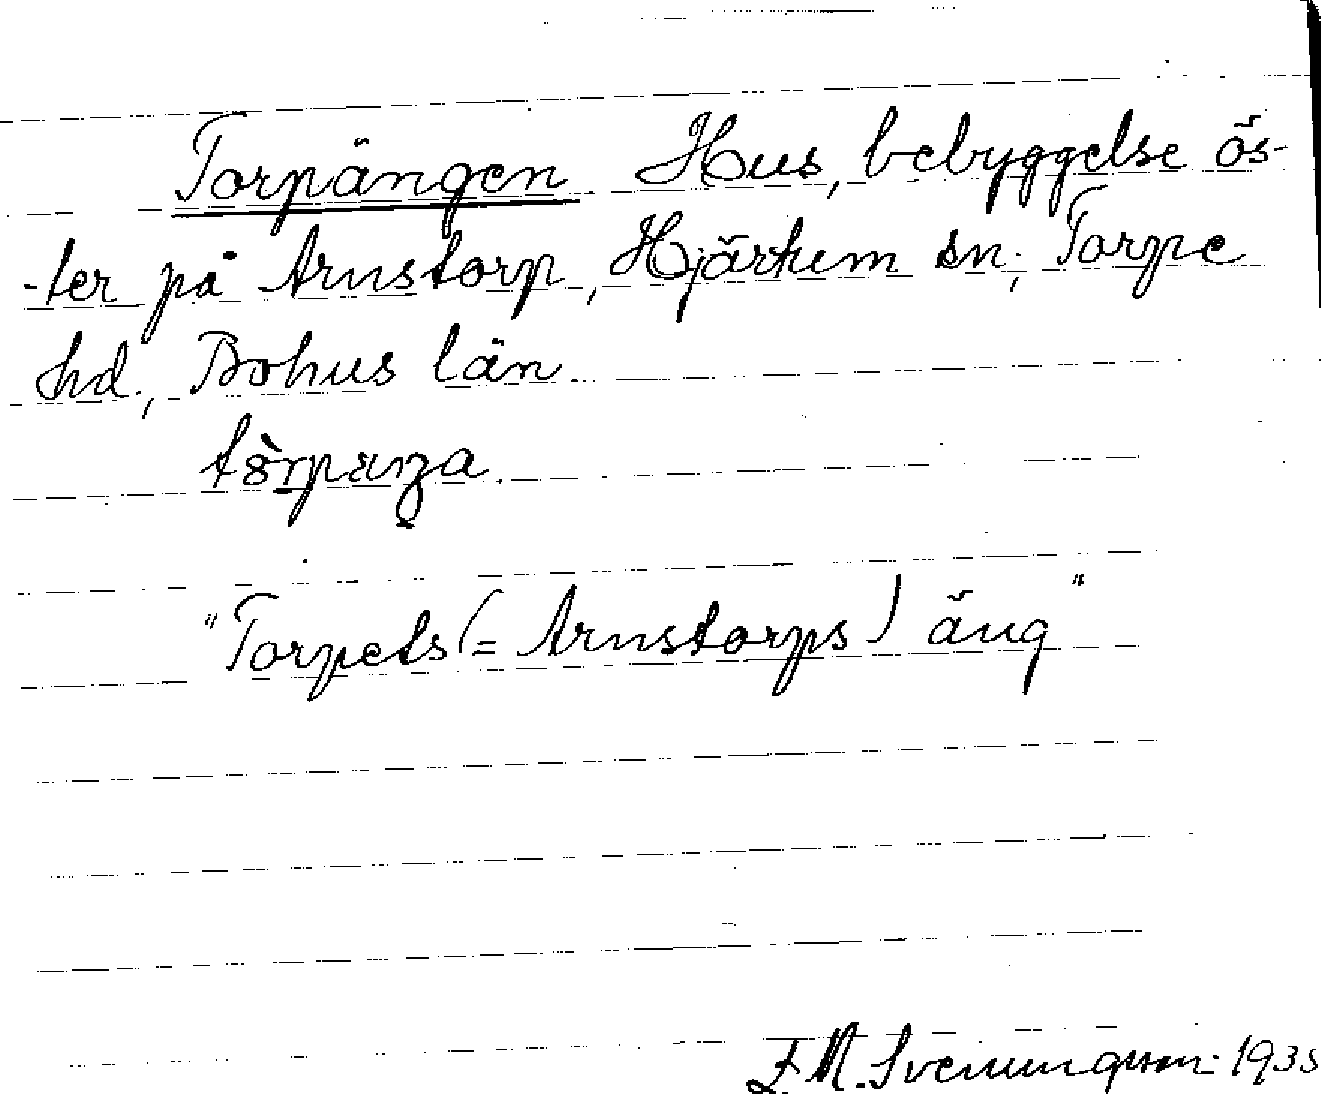 Torpängen Hus, bebyggelse ös-
-ter på Arnstorp, Hjärtum sn., Torpe
hd., Bohus län
"Torpets (= Arnstorps) äng"
1935